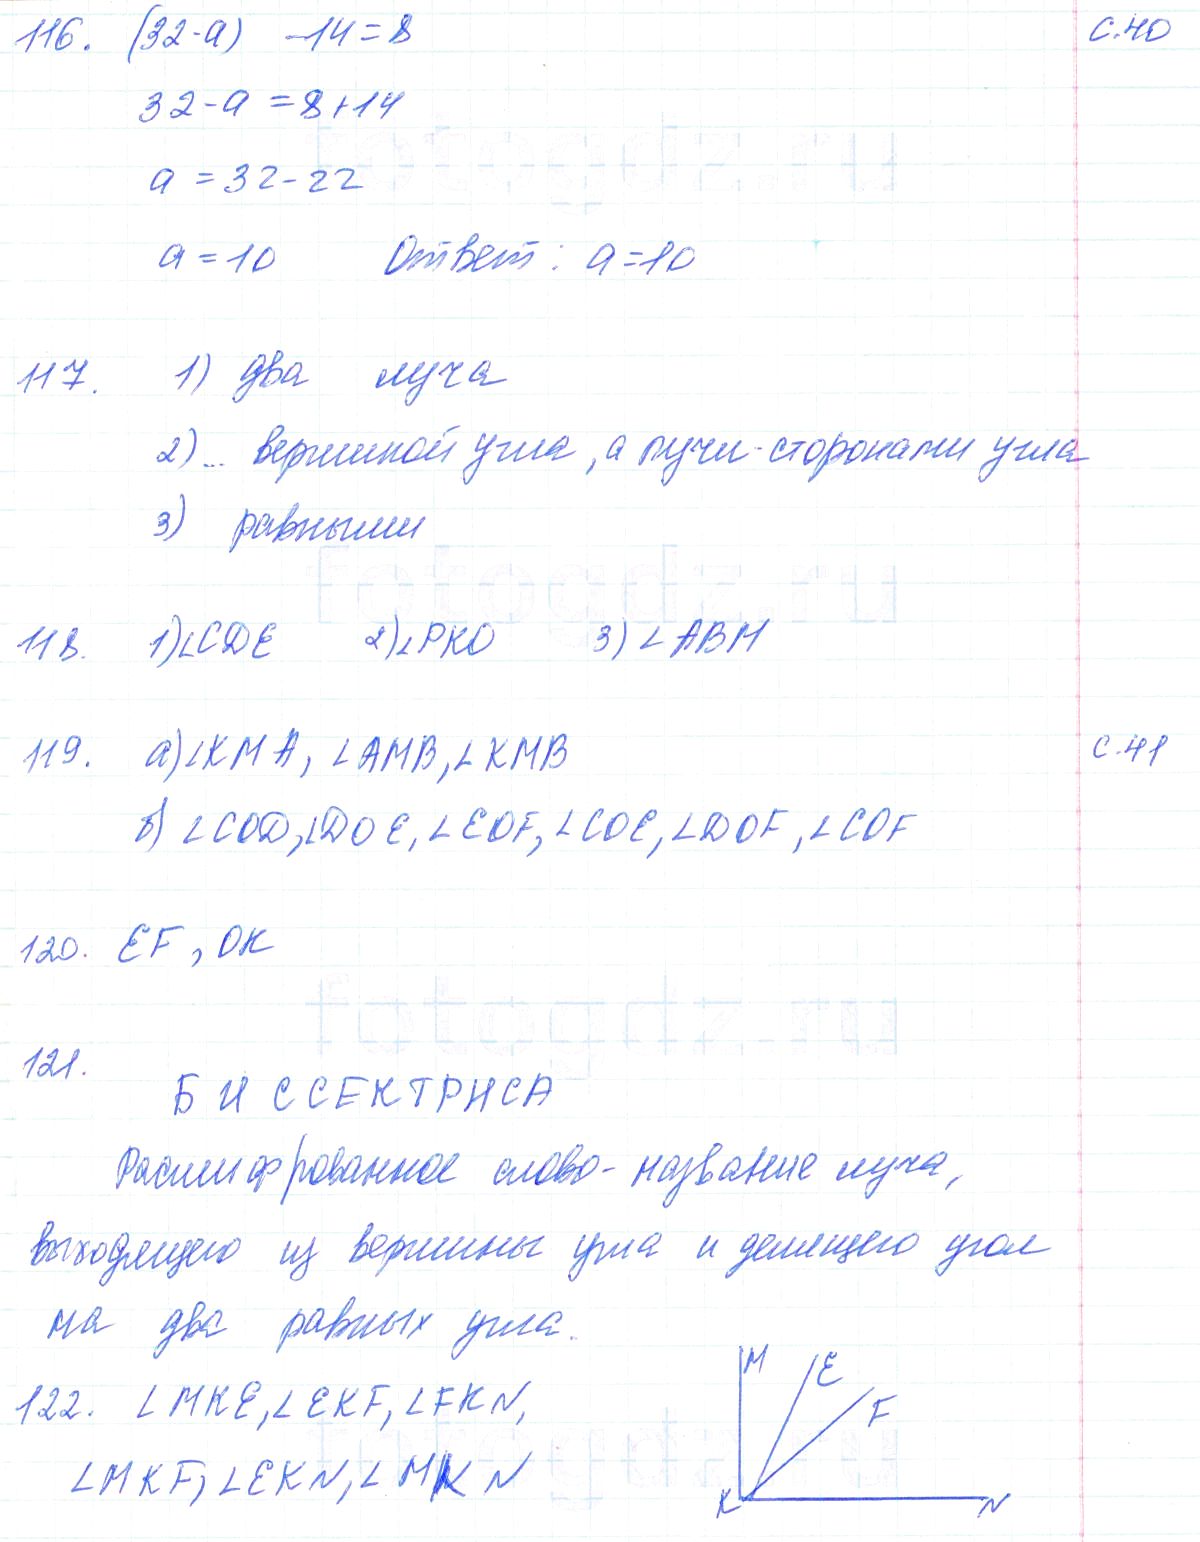 116. (32-а) -14=8 с.40
32-а =8+14
а =32-22
а=10 Ответ: а=10
117. 1) два луча
2)... вершиной угла, а лучи-сторонами угла
3) равными
118. 1)∠CDE 2)∠PKO 3)∠ABM
119. а)∠KMA, ∠AMB,∠KMB с.41
б) ∠COD,∠DOE, ∠EOF, ∠COE, ∠DOF, ∠COF
120. EF, OK
121.
БИССЕКТРИСА
Расшифрованное слово-название луча,
выходящего из вершины угла и делящего угол
на два равных угла.
122. ∠MKE,∠EKF,∠FKN,
∠MKF,∠EKN,∠MKN
M E
F
K N
fotogdz.ru
fotogdz.ru
fotogdz.ru
fotogdz.ru